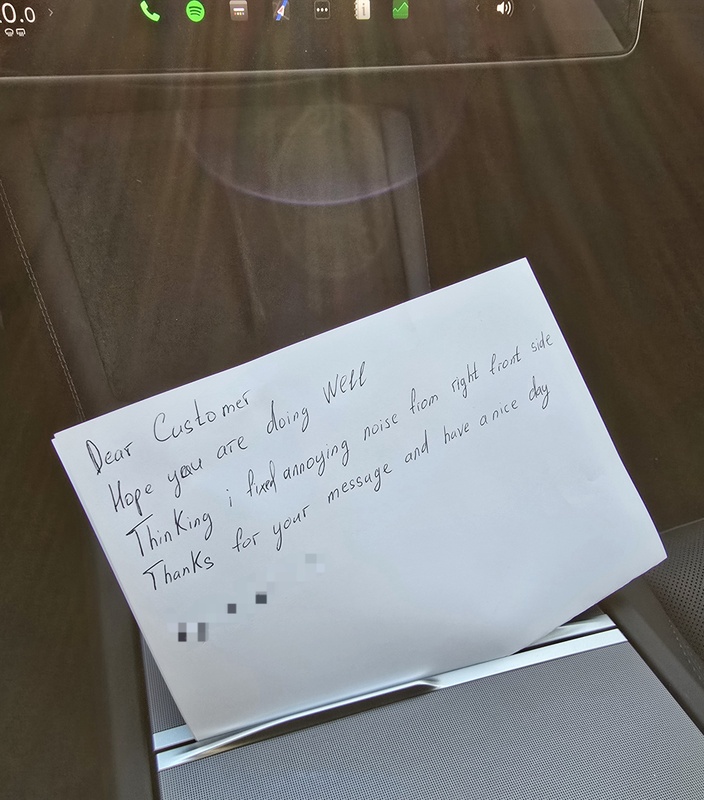 0.0
Dear Customer
Hope you are doing well
Thinking i fixed annoying noise from right front side
Thanks for your message and have a nice day